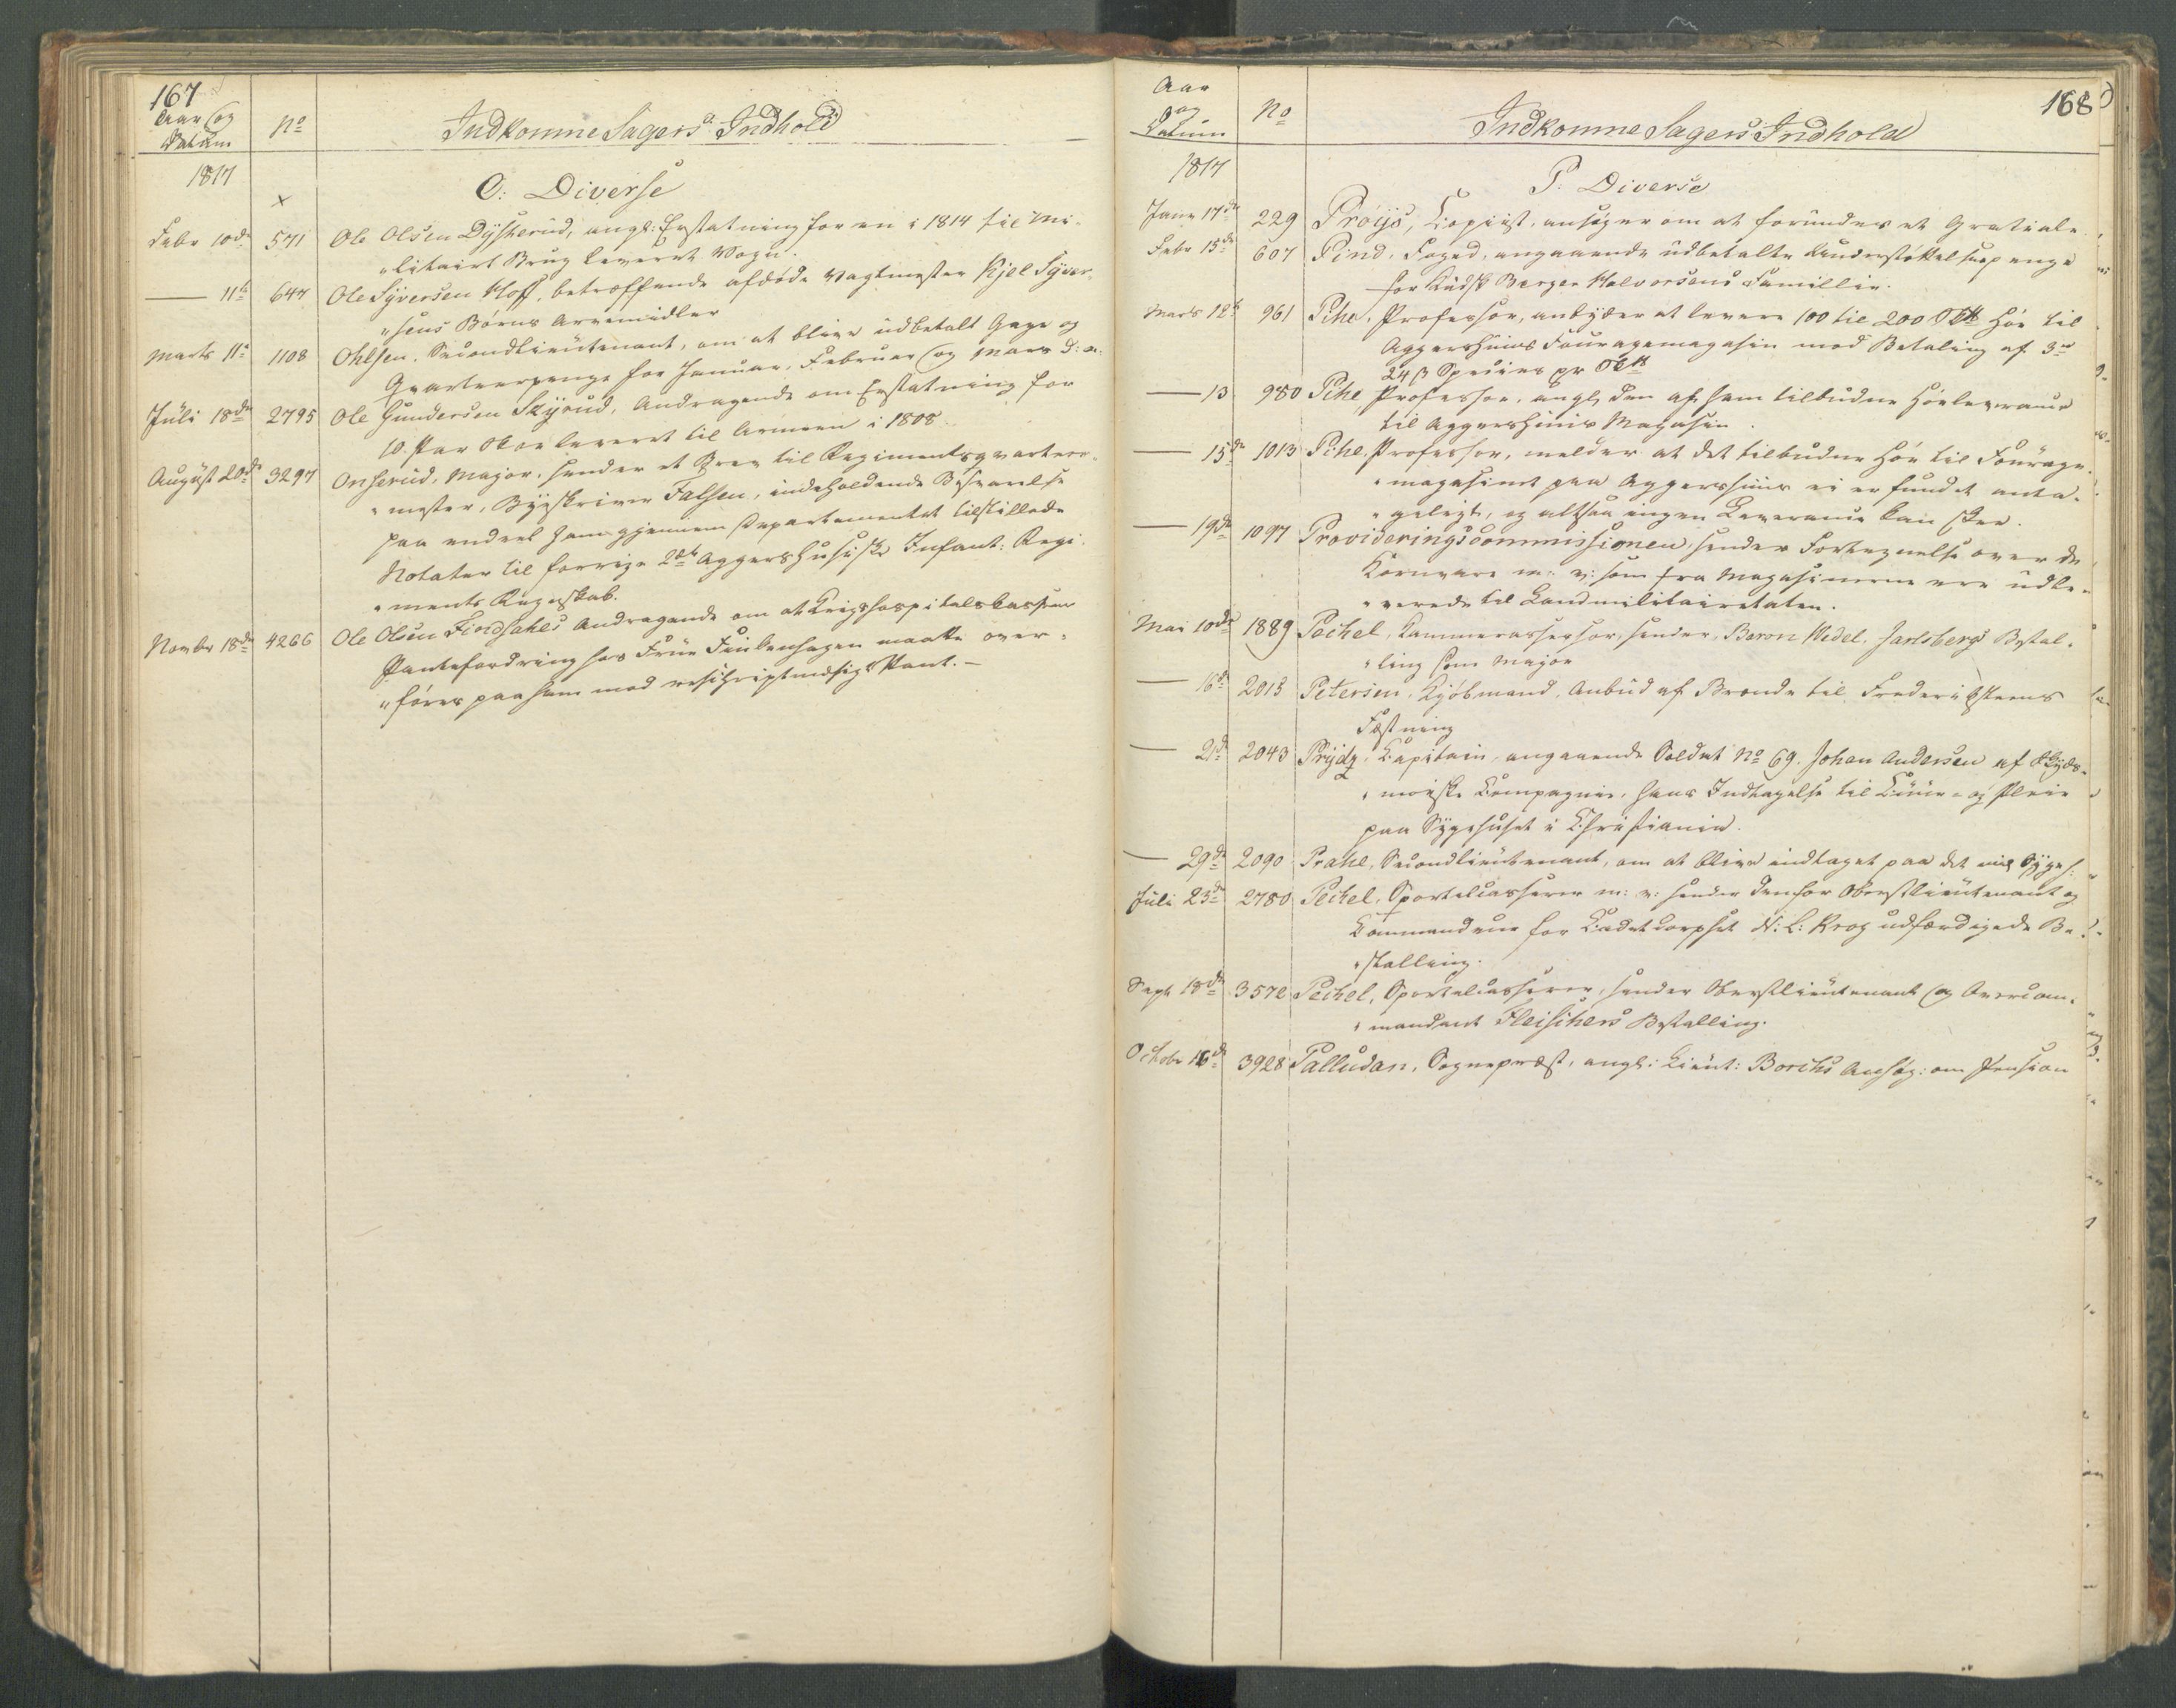 167
Aar og
Datum
No
Indkomne Sagers Indhold
1817
O: Diverse
Febr 10de 571 Ole Olsen Dysterud, angl: Erstatning for en i 1814 til Mi-
"litairt Brug leveret Vogn.
— 11te 647 Ole Syversen Hoff, betræffende afdøde Vagtmester Kjel Syver-
"sens Børns Arvemidler
Marts 11te 1108 Ohlsen, Secondlieutenant, om at blive udbetalt Gage og
Qvarteerpenge for Januar, Februar og Mars d: a:
Juli 18de 2795 Ole Gundersen Skyrud, Andragende om Erstatning for
10 Par Skoe leveret til Armeen i 1808.
August 20de 3297 Onserud, Major, sender et Brev til Regimentsqvarteer-
"mester, Byeskriver Falsen, indeholdende Besvarelse
paa endeel ham gjennem Departementet tilstillede
Notater til forrige 2det Aggershusiske Infant: Regi-
"ments Regnskab.
Novbr 18de 4266 Ole Olsen Findsahls Andragende om at Krigshospitalskassens
Pantefordring hos Frue Finkenhagen maatte over-
"føres paa ham mod reskriptmæsigt Pant.—
Aar
og
Datum
No
Indkomne Sagers Indhold
168
1817
P: Diverse
Janv 17de 229 Prøijs, Copiist, ansøger om at forundes et Gratiale.
Febr 15de 607 Pind, Foged, angaaende udbetalte Understøttelsespenge
for Kudsk Berger Halvorsens Familie.
Marts 12te 961 Pihl, Professor, anbyder at levere 100 til 200 Høe til
Aggershuus Fouragemagasin mod Betaling af 3
24 β Species pr
— 13 980 Pihl, Professor, angl den af ham tilbudne Høeleverance
til Aggershuus Magasin.
— 15de 1013 Pihl, Professor, melder at det tilbudne Høe til Fourage-
"magasinet paa Aggershuus ei er fundet anta-
"geligt, og altsaa ingen Leverance kan skee.
— 19de 1097 Provideringscommissionen, sender Fortegnelse over de
Kornvare m: v: som fra Magasinerne ere udle-
"verede til Landmilitairetaten.
Mai 10de 1889 Pechel, Kammerassessor, sender Baron Wedel Jarlsbergs Bestal-
"ling som Major
— 16de 2013 Petersen, Kjøbmand, Anbud af Brænde til Frederiksteens
Fæstning
— 21de 2043 Prydz, Capitain, angaaende Soldat No 69. Johan Andersen af
Compagnie, hans Indtagelse til Cuur- og Pleie
paa Sygehuset i Christiania.
— 29de 2090 Prahl, Secondlieutenant, om at blive indtaget paa det mil Sygeh:
Juli 23de 2780 Pechel, Sportelcasserer m: v: sender den for Oberstlieutenant og
Commandeur for Cadetcorpset N: L: Krog udfærdigede Be-
"stalling.
Sept 18de 3572 Pechel, Sportelcasserer, sender Oberstlieutenant og Overcom-
"mandant Fleischers Bestalling.
Octobr 16de 3928 Palludan, Sognepræst, angl: Lieut: Borchs Ansøg: om Pension